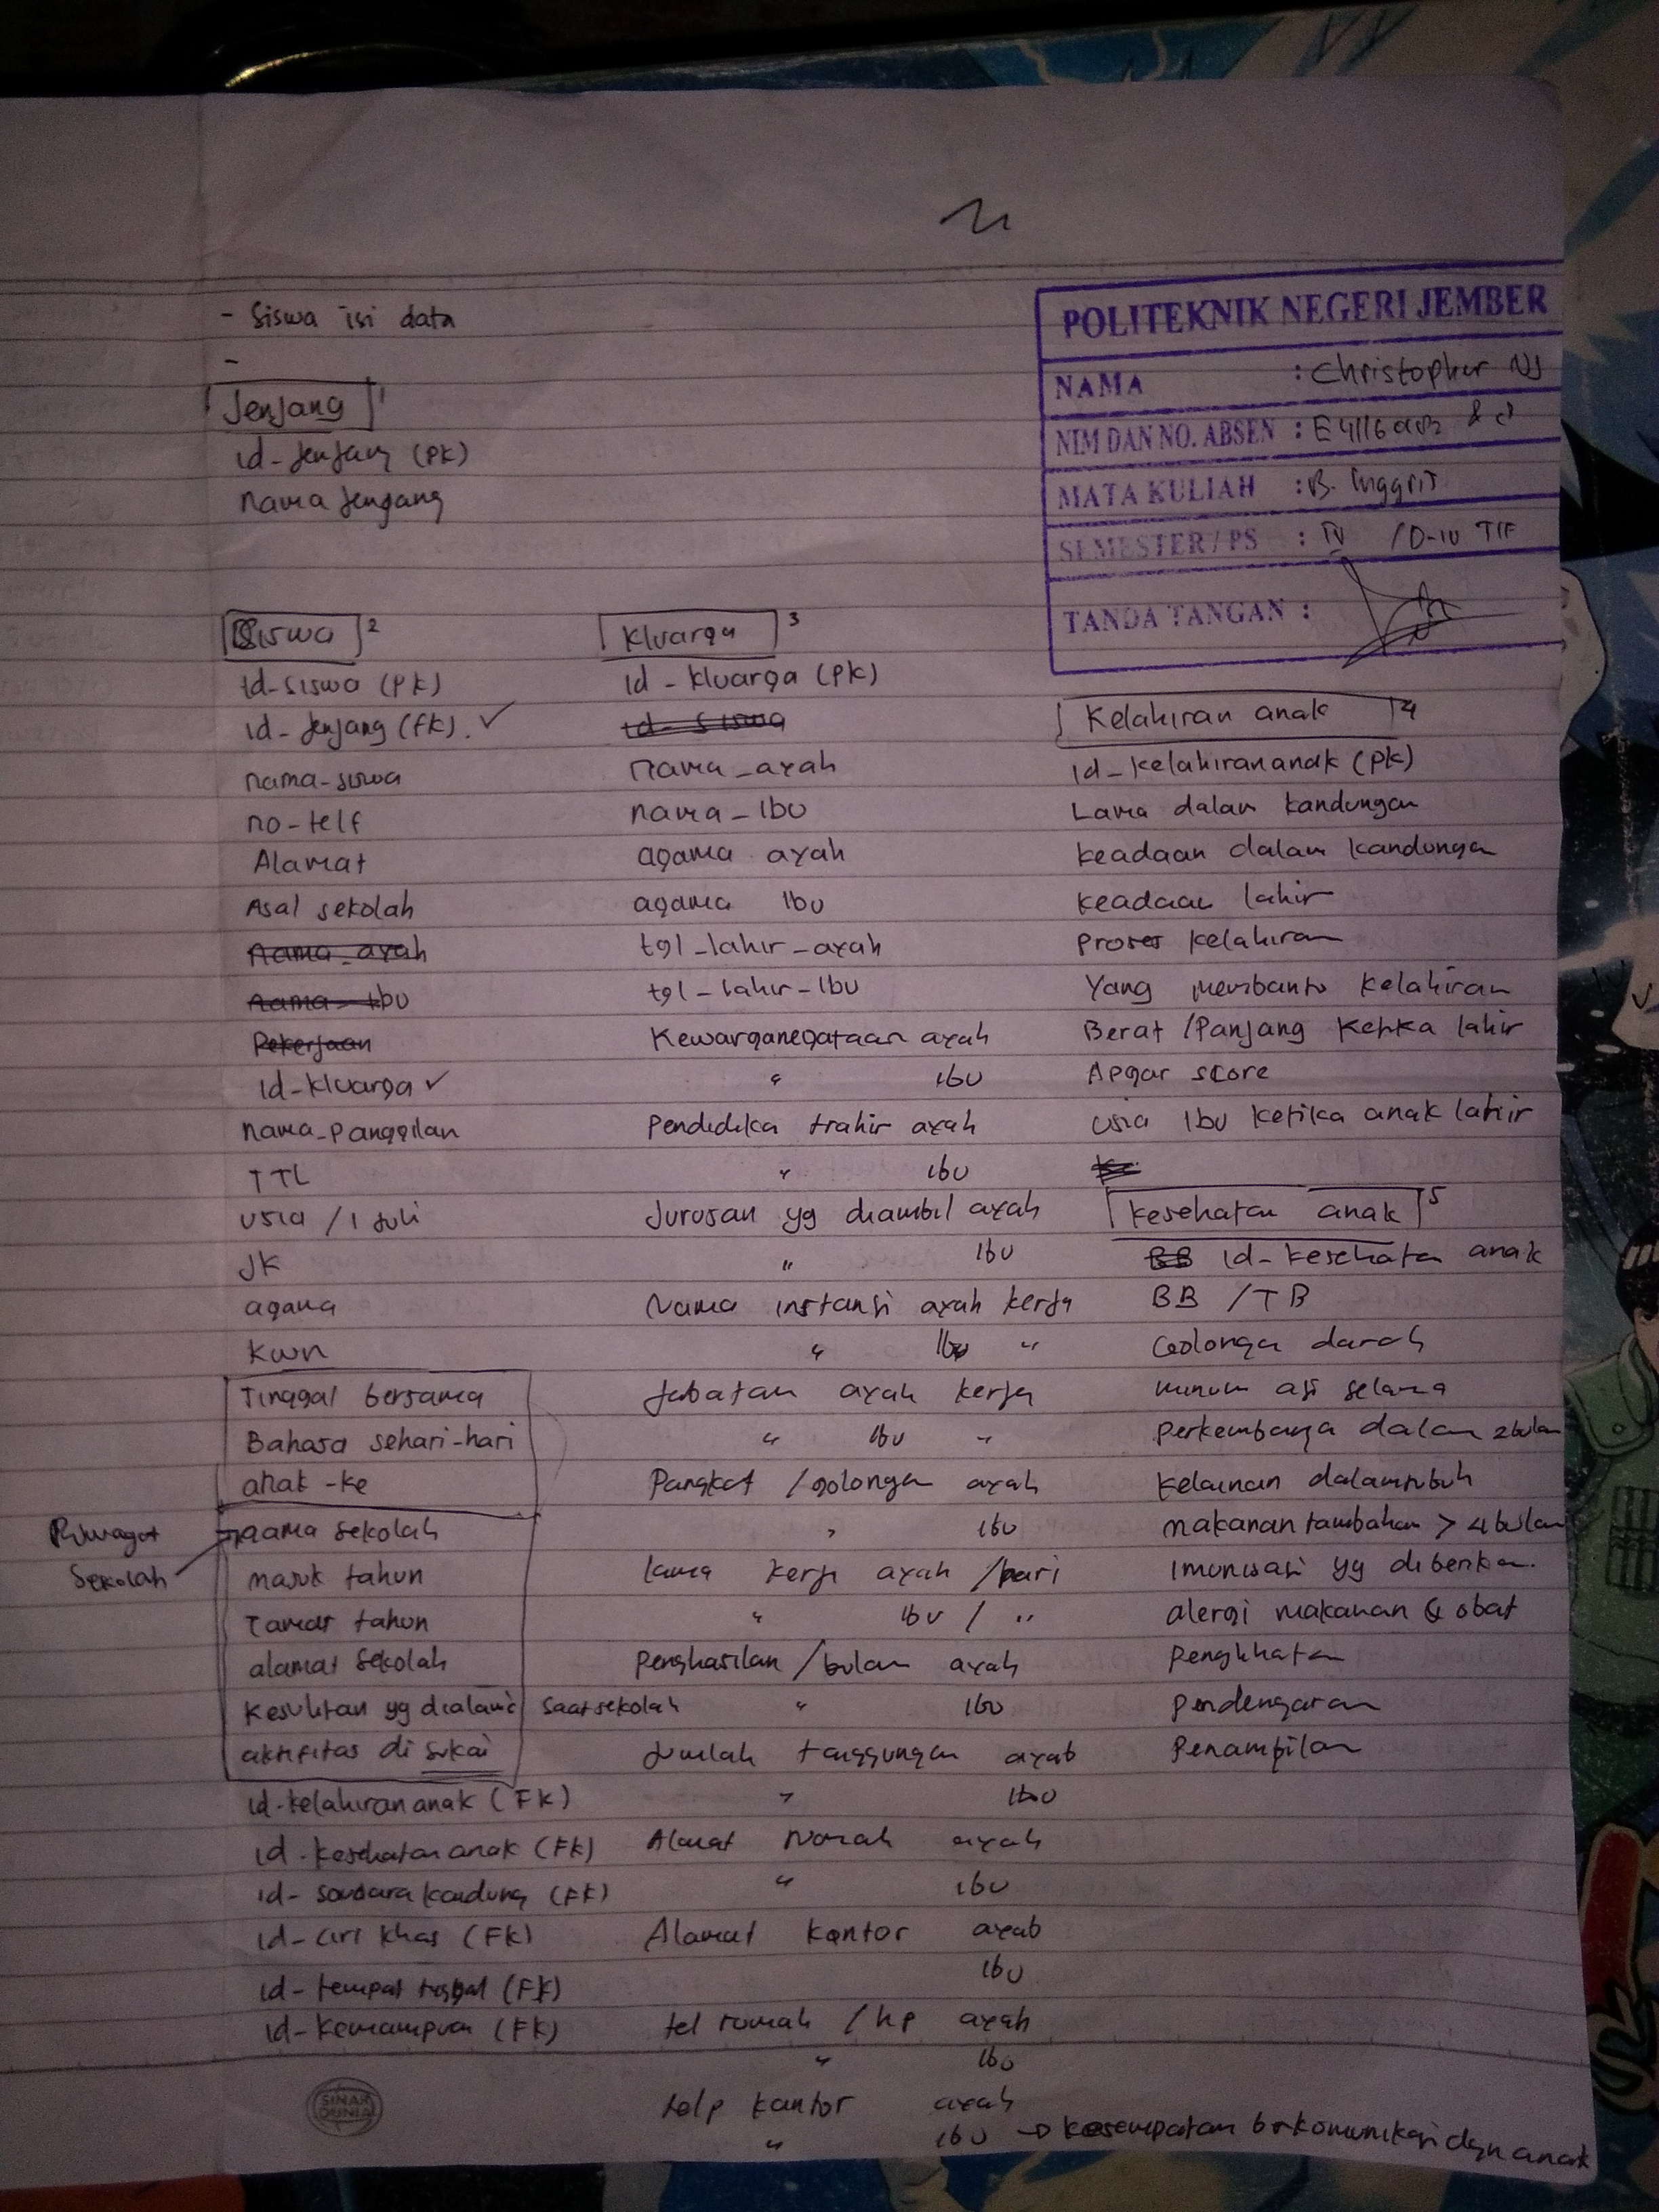 - Siswa isi data
-
POLITEKNIK NEGERI JEMBER
NAMA : Christopher NJ
NIM DAN NO. ABSEN :
MATA KULIAH : B. Inggris
SEMESTER / PS : IV / D-IV TIF
TANDA TANGAN :
Jenjang 1
id-jenjang (PK)
nama jenjang
Siswa 2
id-siswa (PK)
id-jenjang (FK). ✓
nama-siswa
no-telf
Alamat
Asal sekolah
nama_ayah
nama-ibu
Pekerjaan
id-kluarga ✓
nama_panggilan
TTL
usia / 1 Juli
JK
agama
kwn
Tinggal bersama
Bahasa sehari-hari
anak-ke
Riwayat sekolah
nama sekolah
masuk tahun
Tamat tahun
alamat sekolah
Kesulitan yg dialami saat sekolah
aktifitas di sukai
id-kelahiran anak (FK)
id-kesehatan anak (FK)
id-saudara kandung (FK)
id-ciri khas (FK)
id-tempat tinggal (FK)
id-kemampuan (FK)
SINAR DUNIA
Kluarga 3
id-kluarga (PK)
id-siswa
nama_ayah
nama-ibu
agama ayah
agama ibu
tgl_lahir_ayah
tgl-lahir-ibu
Kewarganegataan ayah
" ibu
Pendidika trahir ayah
" ibu
Jurusan yg diambil ayah
" ibu
Nama instansi ayah kerja
" ibu "
Jabatan ayah kerja
" ibu "
Pangkat / golongan ayah
" ibu
lama kerja ayah / hari
" ibu / "
Penghasilan / bulan ayah
" ibu
Jumlah tanggungan ayah
" ibu
Alamat rumah ayah
" ibu
Alamat kantor ayah
ibu
tel rumah / hp ayah
" ibu
telp kantor ayah
" ibu → kesempatan berkomunikasi dgn anak
Kelahiran anak 4
id-kelahiran anak (PK)
Lama dalam kandungan
keadaan dalam kandungan
keadaan lahir
Proses kelahiran
Yang membantu kelahiran
Berat / Panjang ketika lahir
Apgar score
usia ibu ketika anak lahir
kesehatan anak 5
BB id-kesehatan anak
BB / TB
Golongan darah
minum asi selama
Perkembanga dalam 2 bulan
Kelainan dalam tubuh
makanan tambahan > 4 bulan
Imunisasi yg diberikan.
alergi makanan & obat
Penglihatan
Pendengaran
Penampilan